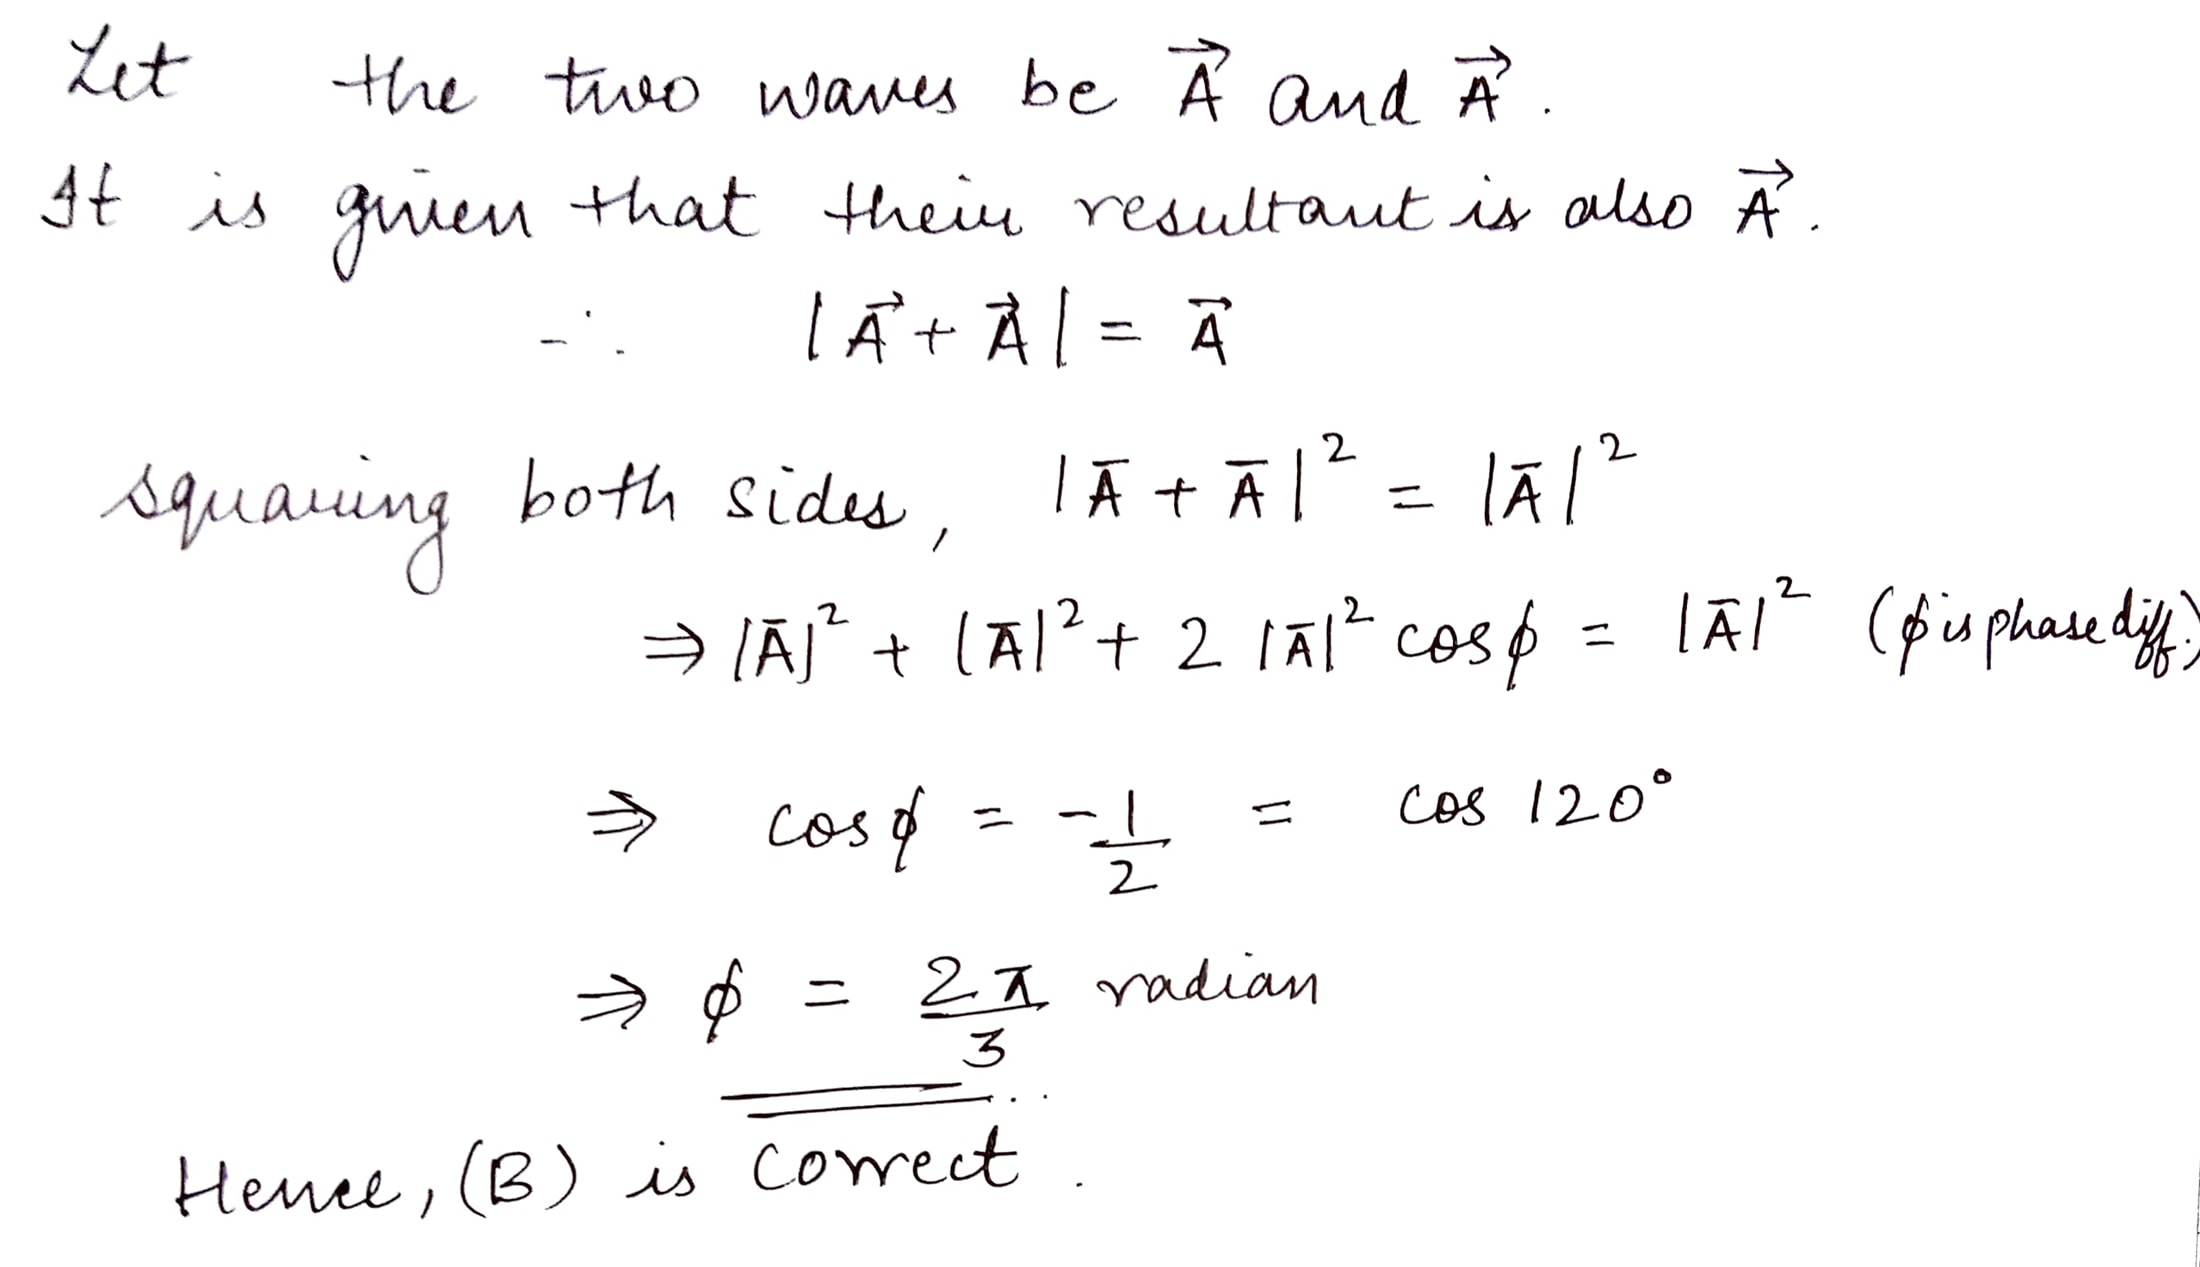 Let the two waves be A⃗ and A⃗.
It is given that their resultant is also A⃗.
∴ |A⃗ + A⃗| = A⃗
squaring both sides, |Ā + Ā|² = |Ā|²
⇒ |Ā|² + |Ā|² + 2 |Ā|² cosϕ = |Ā|² (ϕ is phase diff.)
⇒ cosϕ = -1/2 = cos 120°
⇒ ϕ = 2π/3 radian
Hence, (B) is correct.